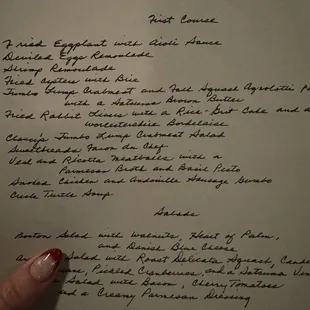 First Course
Fried Eggplant with Aioli Sauce
Deviled Eggs Remoulade
Shrimp Remoulade
Fried Oysters with Brie
Jumbo Lump Crabmeat and Fall Squash Agrolotti
with a Satsuma Brown Butter
Fried Rabbit Livers with a Rice Grit Cake and
Worcestershire Bordelaise
Classic Jumbo Lump Crabmeat Salad
Sweetbreads Facon du Chef
Veal and Ricotta Meatballs with a
Parmesan Broth and Basil Pesto
Smoked Chicken and Andouille Sausage Gumbo
Creole Turtle Soup
Salads
Boston Salad with Walnuts, Heart of Palm,
and Danish Blue Cheese
Salad with Roast Delicata Squash,
Pickled Cranberries, and a Satsuma
Salad with Bacon, Cherry Tomatoes
and a Creamy Parmesan Dressing